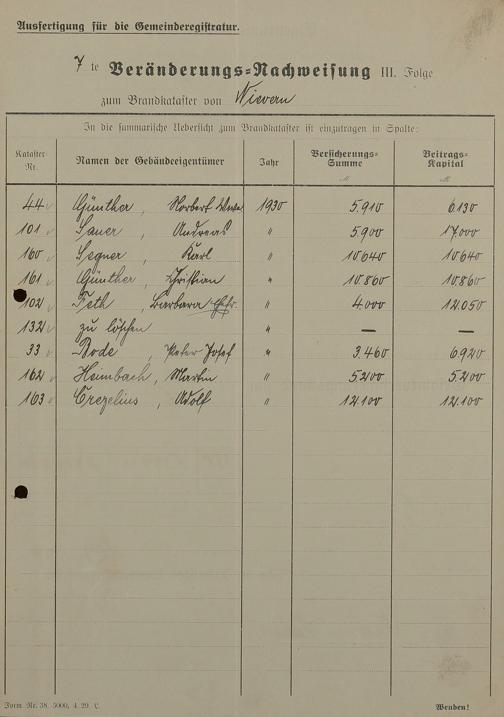 Ausfertigung für die Gemeinderegistratur.
7 te Veränderungs-Nachweisung III. Folge
zum Brandkataster von Nievern
In die summarische Uebersicht zum Brandkataster ist einzutragen in Spalte:
Kataster-Nr. Namen der Gebäudeeigentümer Jahr Versicherungs-Summe Beitrags-Kapital
M M
44 Günther, Norbert Wwe 1930 5.910 6.130
101 Sauer, Andreas " 5.900 17.000
160 Segner, Karl " 10640 10640
161 Günther, Christian " 10.860 10.860
102 Feth, Barbara " 4.000 12.050
132 zu löschen " — —
33 Bode, Peter Josef " 3.460 6.920
162 Heimbach, Martin " 5.200 5.200
163 Crezelius, Adolf " 12.100 12.100
Form. Nr. 38. 5000, 4. 29. L. Wenden!